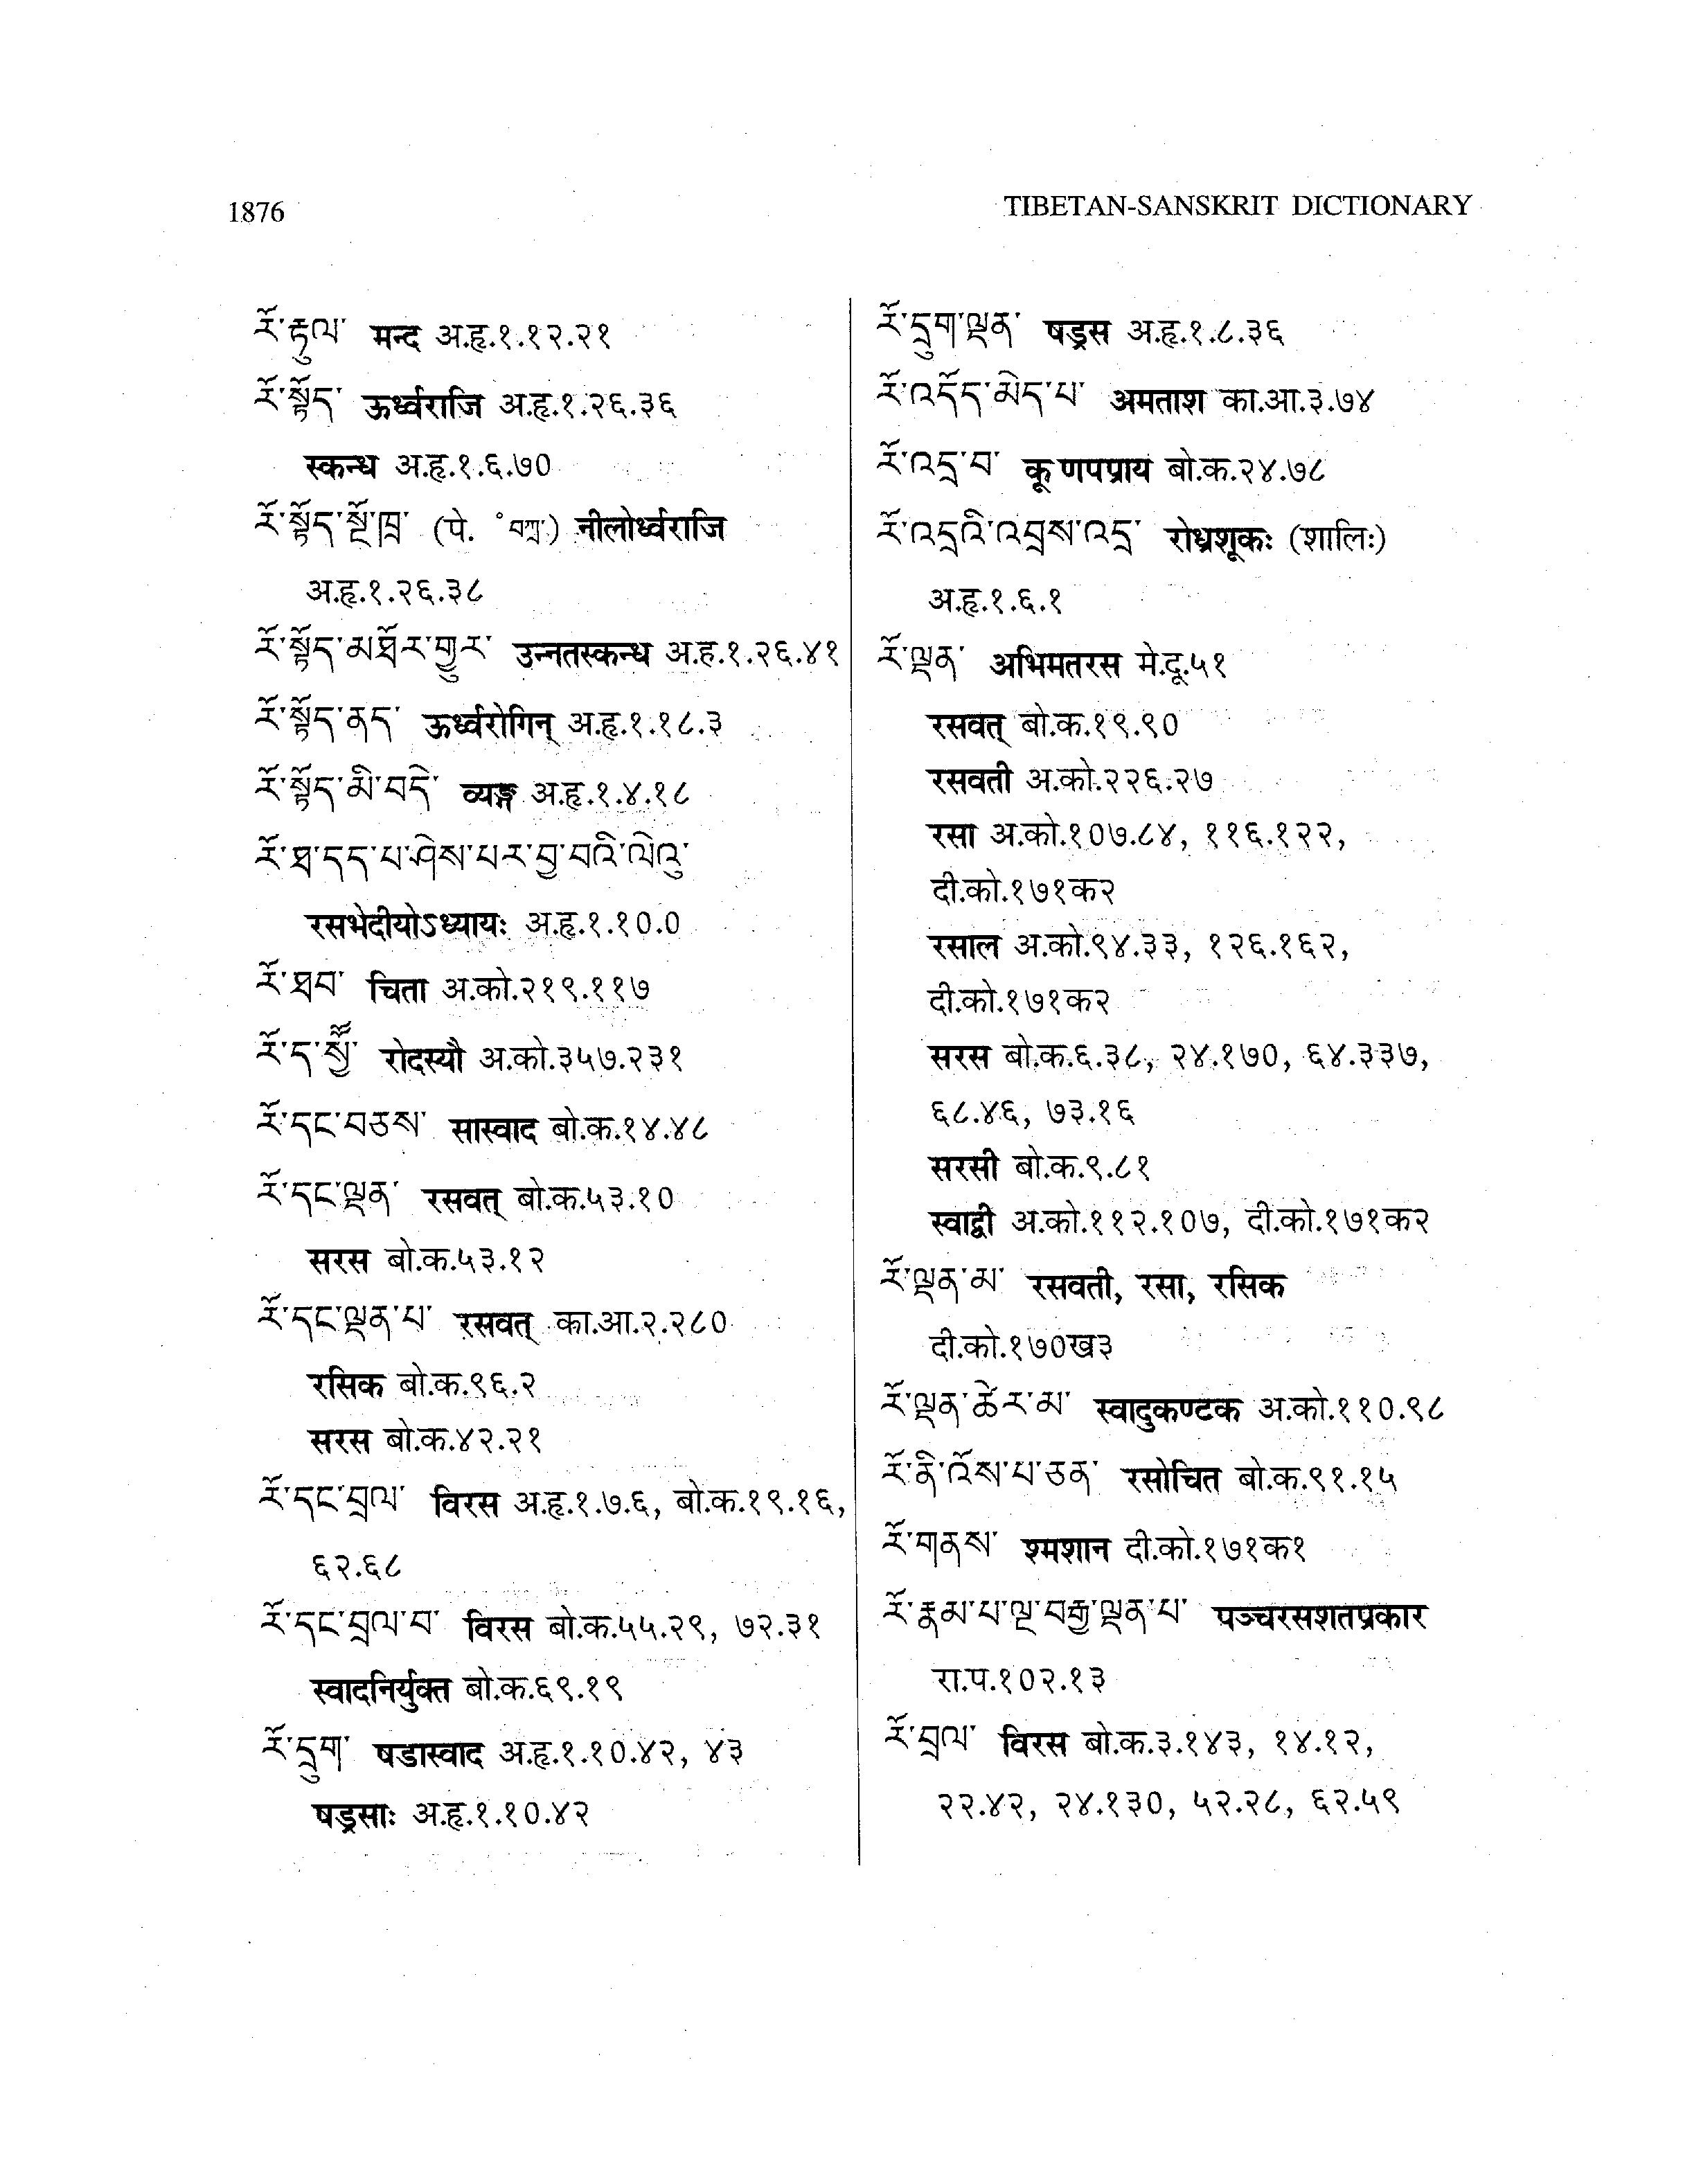 1876
TIBETAN-SANSKRIT DICTIONARY
རོ་རྟུལ་ मन्द अ.हृ.१.१२.२१
རོ་སྟོད་ ऊर्ध्वराजि अ.हृ.१.२६.३६
स्कन्ध अ.हृ.१.६.७०
རོ་སྟོད་སྔོ་ཁྲ་ (पे. ॰བཀྲ་) नीलोर्ध्वराजि
अ.हृ.१.२६.३८
རོ་སྟོད་མཐོར་གྱུར་ उन्नतस्कन्ध अ.ह.१.२६.४१
རོ་སྟོད་ནད་ ऊर्ध्वरोगिन् अ.हृ.१.१८.३
རོ་སྟོད་མི་བདེ་ व्यङ्ग अ.हृ.१.४.१८
རོ་ཐ་དད་པ་ཤེས་པར་བྱ་བའི་ལེའུ་
रसभेदीयोऽध्यायः अ.हृ.१.१०.०
རོ་ཐབ་ चिता अ.को.२१९.११७
རོ་ད་སྱཽ་ रोदस्यौ अ.को.३५७.२३१
རོ་དང་བཅས་ सास्वाद बो.क.१४.४८
རོ་དང་ལྡན་ रसवत् बो.क.५३.१०
सरस बो.क.५३.१२
རོ་དང་ལྡན་པ་ रसवत् का.आ.२.२८०
रसिक बो.क.९६.२
सरस बो.क.४२.२१
རོ་དང་བྲལ་ विरस अ.हृ.१.७.६, बो.क.१९.१६,
६२.६८
རོ་དང་བྲལ་བ་ विरस बो.क.५५.२९, ७२.३१
स्वादनिर्युक्त बो.क.६९.१९
རོ་དྲུག་ षडास्वाद अ.हृ.१.१०.४२, ४३
षड्रसाः अ.हृ.१.१०.४२
རོ་དྲུག་ལྡན་ षड्रस अ.हृ.१.८.३६
རོ་འདོད་མེད་པ་ अमताश का.आ.३.७४
རོ་འདྲ་བ་ कूणपप्राय बो.क.२४.७८
རོ་འདྲའི་འབྲས་འདྲ་ रोध्रशूकः (शालिः)
अ.हृ.१.६.१
རོ་ལྡན་ अभिमतरस मे.दू.५१
रसवत् बो.क.१९.९०
रसवती अ.को.२२६.२७
रसा अ.को.१०७.८४, ११६.१२२,
दी.को.१७१क२
रसाल अ.को.९४.३३, १२६.१६२,
दी.को.१७१क२
सरस बो.क.६.३८, २४.१७०, ६४.३३७,
६८.४६, ७३.१६
सरसी बो.क.९.८१
स्वाद्वी अ.को.११२.१०७, दी.को.१७१क२
རོ་ལྡན་མ་ रसवती, रसा, रसिक
दी.को.१७०ख३
རོ་ལྡན་ཚེར་མ་ स्वादुकण्टक अ.को.११०.९८
རོ་ནི་འོས་པ་ཅན་ रसोचित बो.क.९१.१५
རོ་གནས་ श्मशान दी.को.१७१क१
རོ་རྣམ་པ་ལྔ་བརྒྱ་ལྡན་པ་ पञ्चरसशतप्रकार
रा.प.१०२.१३
རོ་བྲལ་ विरस बो.क.३.१४३, १४.१२,
२२.४२, २४.१३०, ५२.२८, ६२.५९